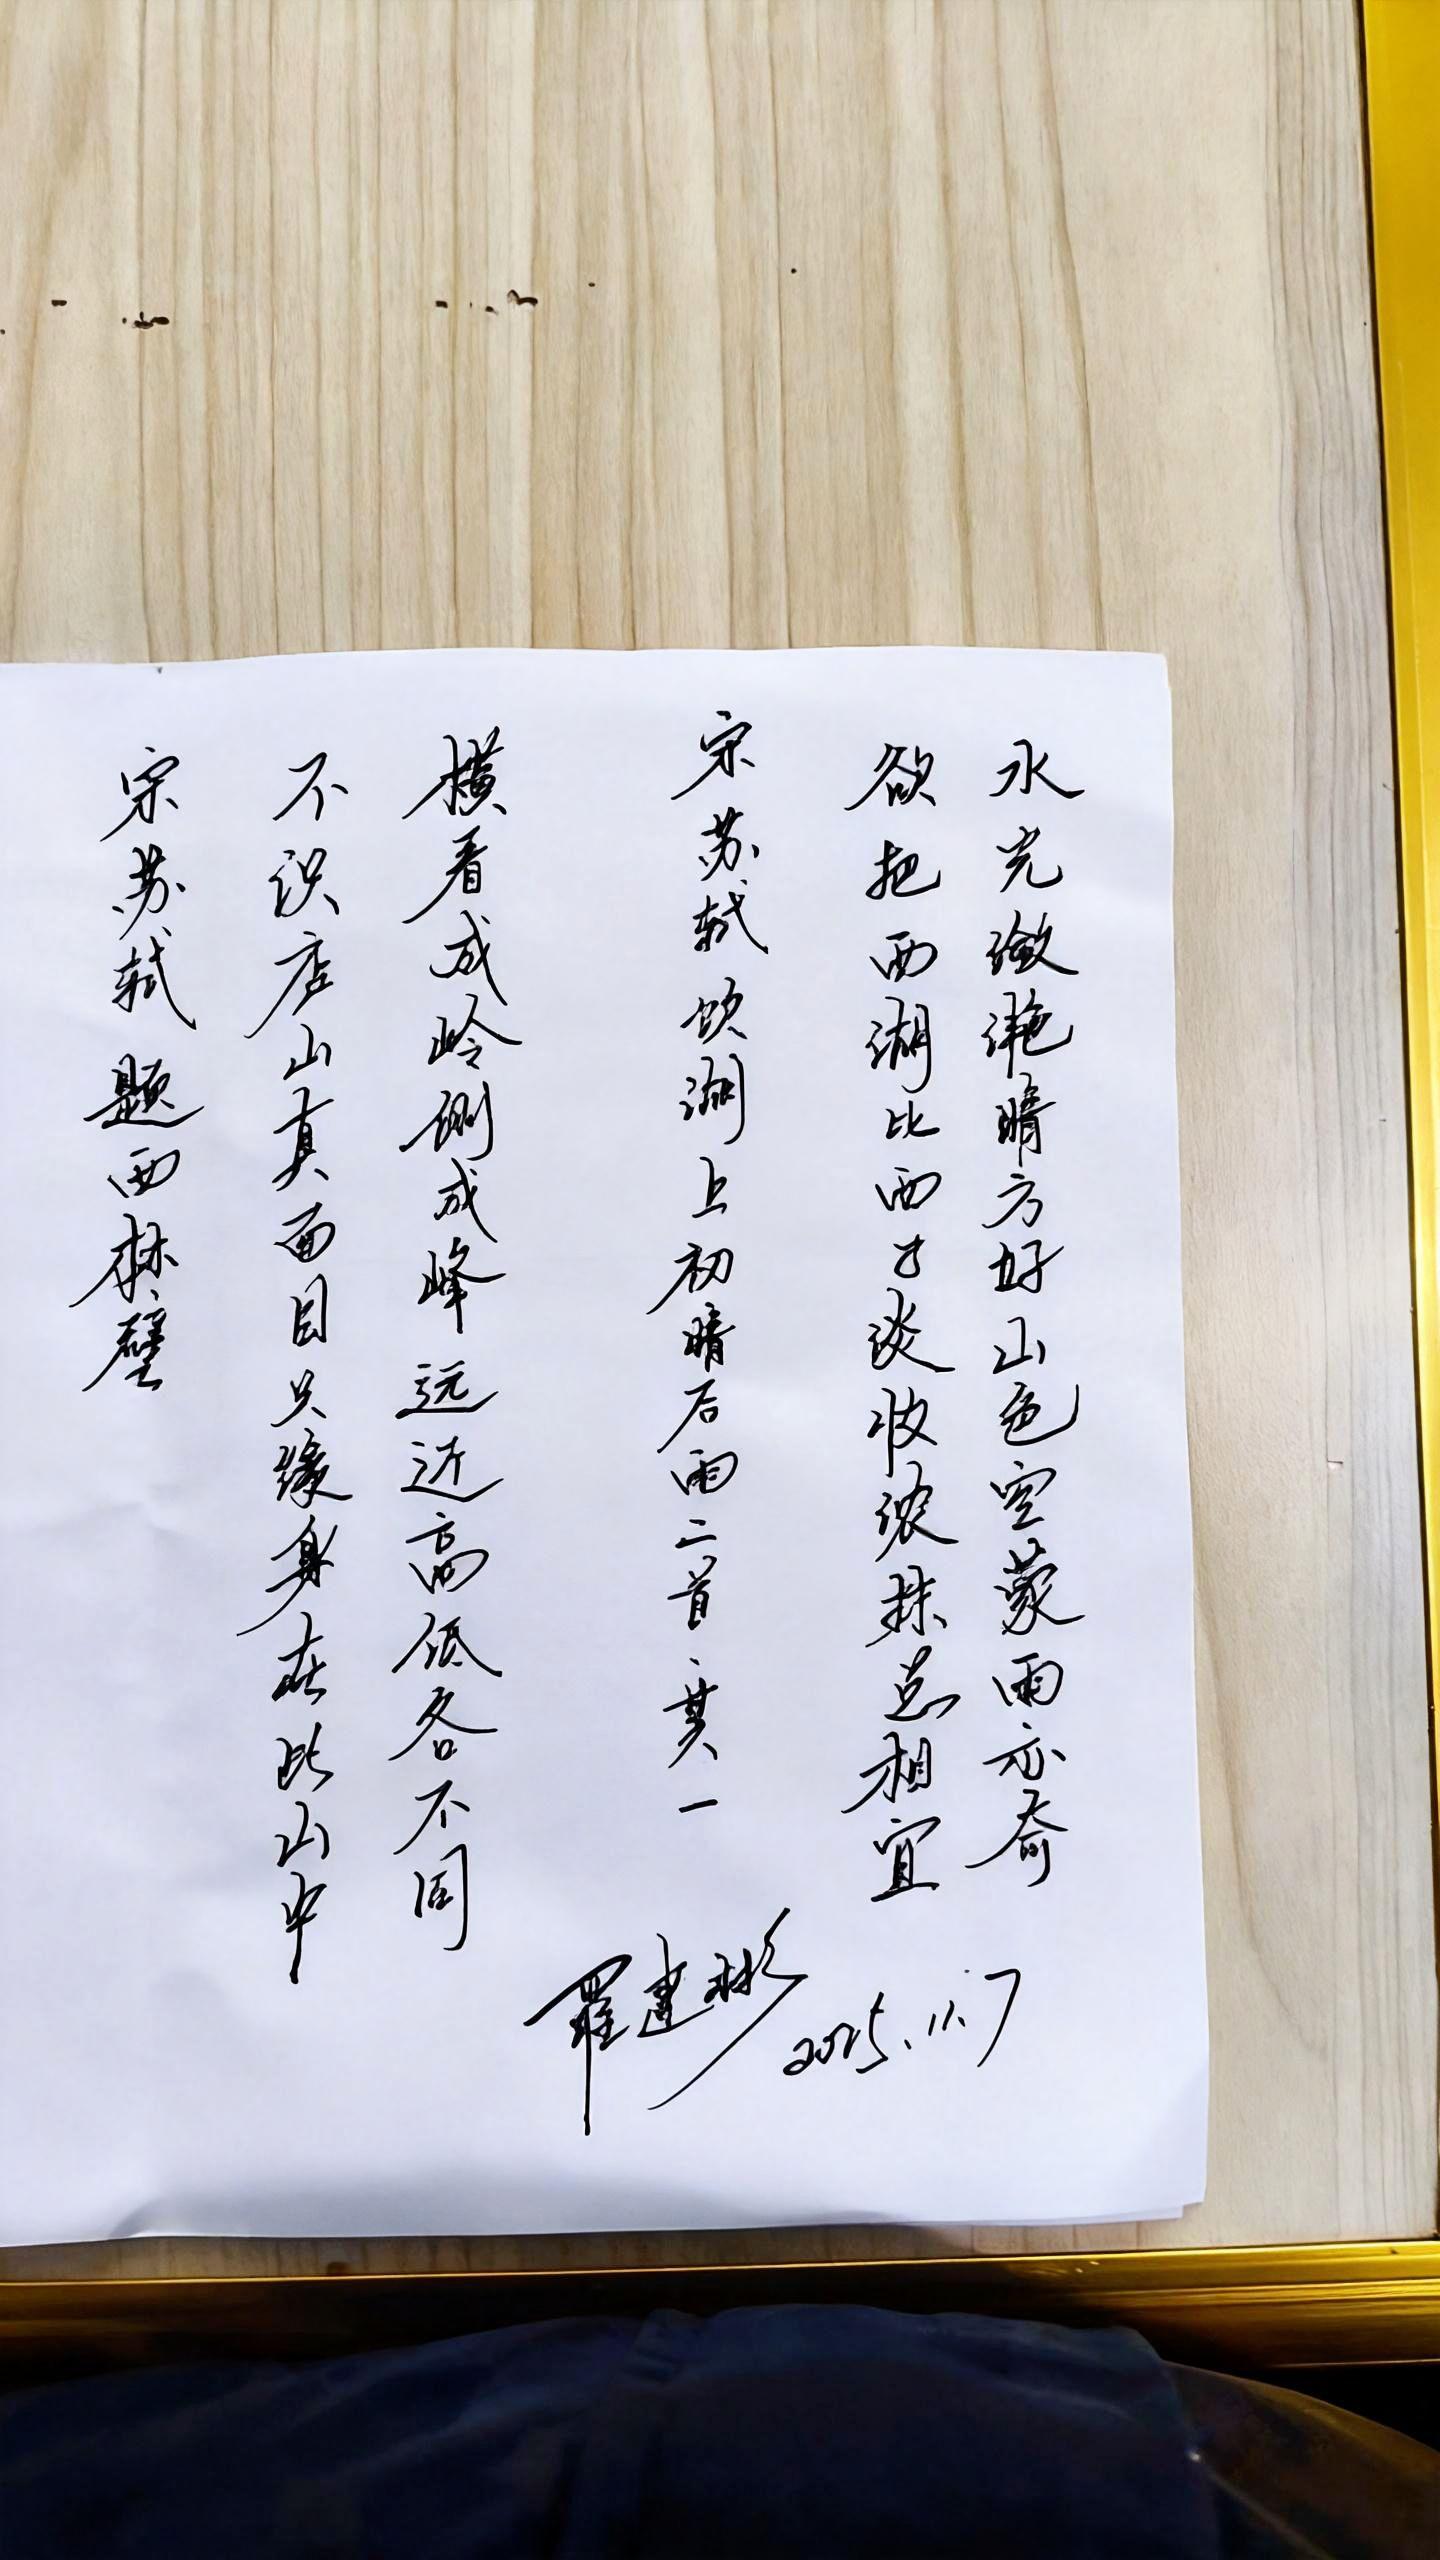 水光潋滟晴方好山色空蒙雨亦奇
欲把西湖比西子淡妆浓抹总相宜
宋苏轼饮湖上初晴后雨二首其一
横看成岭侧成峰远近高低各不同
不识庐山真面目只缘身在此山中
宋苏轼题西林壁
罗建彬
2025.11.7